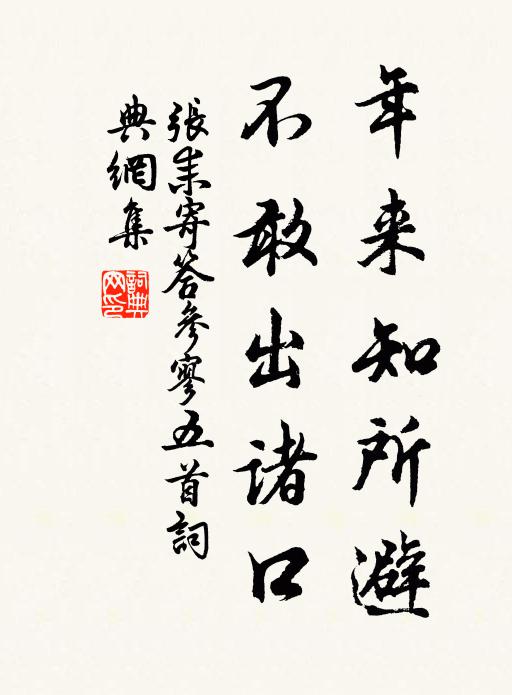 年来知所避
不敢出诸口
張耒寄答參寥五首詞
典網集
詞典網印